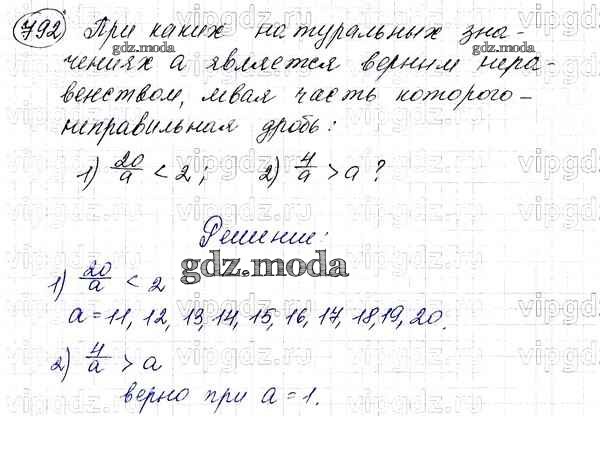 792 При каких натуральных зна-
gdz.moda gdz.moda
чениях a является верным нера-
венством, левая часть которого -
неправильная дробь:
1) 20/a < 2; 2) 4/a > a ?
Решение:
gdz.moda
1) 20/a < 2
a = 11, 12, 13, 14, 15, 16, 17, 18, 19, 20.
2) 4/a > a
верно при a = 1.
vipgdz.ru vipgdz.ru vipgdz.ru